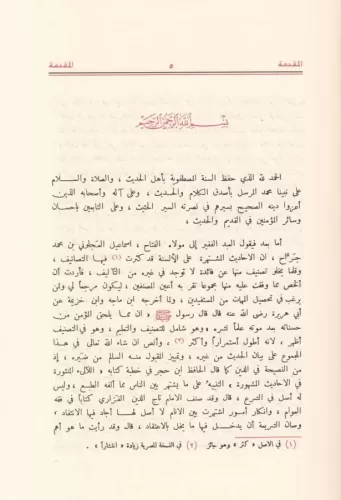 المقدمة ٥ المقدمة
بسم الله الرحمن الرحيم
الحمد لله الذي حفظ السنة المصطفوية بأهل الحديث ، والصلاة والسلام
على نبينا محمد المرسل بأصدق الكلام والحديث ، وعلى آله وأصحابه الذين
أعزوا دينه الصحيح بسيرهم في نصرته السير الحثيث ، وعلى التابعين بإحسان
وسائر المؤمنين في القديم والحديث ،
أما بعد فيقول العبد الفقير إلى مولاه الفتاح ، اسماعيل العجلوني بن محمد
جراح ، ان الاحاديث المشتهرة على الألسنة قد كثرت (١) فيها التصانيف ،
وقلما يخلو تصنيف منها عن فائدة لا توجد في غيره من التآليف ، فأردت أن
الخص مما وقفت عليه منها مجموعا تقر به أعين المصنفين ، ليكون مرجعا لي ولمن
يرغب في تحصيل المهمات من المستفيدين ، ولما أخرجه ابن ماجه وابن خزيمة عن
أبي هريرة رضي الله عنه قال قال رسول الله ﷺ « ان مما يلحق المؤمن من
حسناته بعد موته علما نشره » وهو شامل للتصنيف والتعليم ، وهو في التصنيف
أظهر ، لانه أطول استمرارا وأكثر (٢) ، وأنص ان شاء الله تعالى في هذا
المجموع على بيان الحديث من غيره ، وتمييز المقبول منه السالم من ضيره ، إذ
من النصيحة في الدين كما قال الحافظ ابن حجر في خطبة كتابه « اللآلئ المنثورة
في الاحاديث المشهورة » التنبيه على ما يشتهر بين الناس مما ألفه الطبع ، وليس
له أصل في الشرع ، قال وقد صنف الامام تاج الدين الفزاري كتابا في فقه
العوام ، وانكار أمور اشتهرت بين الانام لا أصل لها أجاد فيها الانتقاد ،
وصان الشريعة أن يدخل فيها ما يخل بالاعتقاد ، قال وقد رأيت ما هو أهم
(١) في الاصل « كثر » وهو جائز (٢) في النسخة المصرية زيادة « انتشارا » .